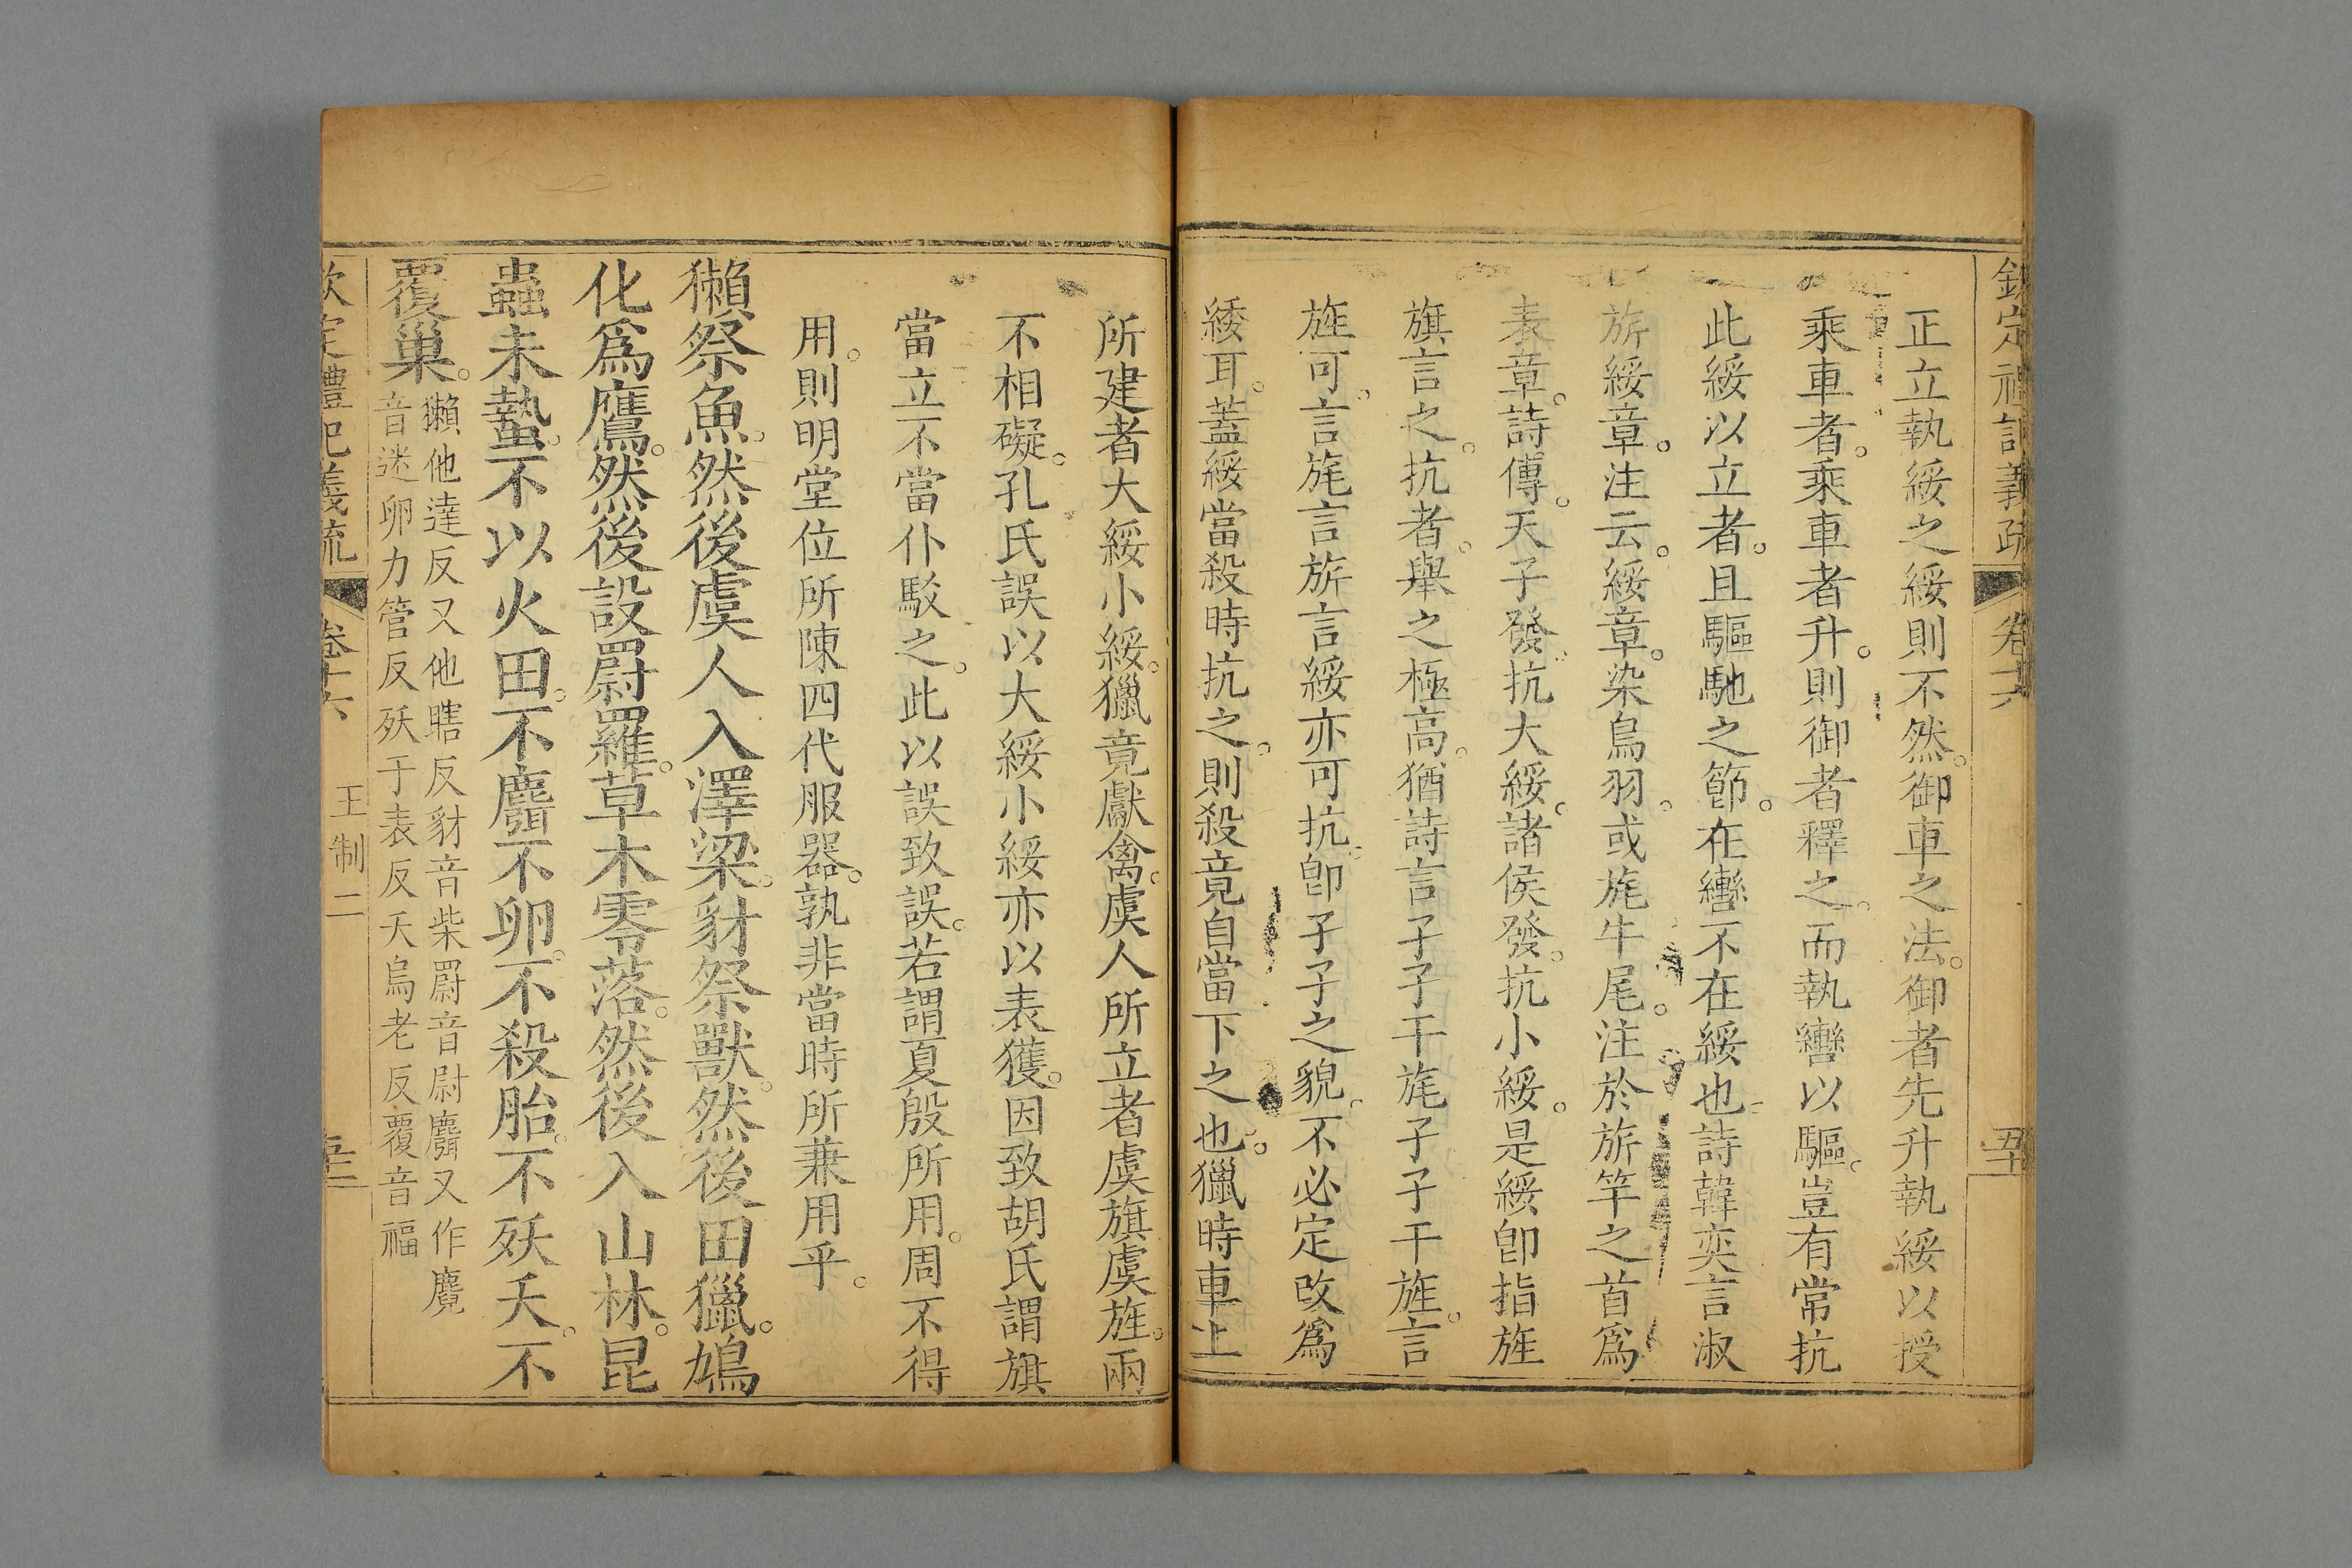 欽定禮記義疏 卷十六
正立執綏之綏則不然。御車之法。御者先升執綏以授
乘車者。乘車者升。則御者釋之。而執轡以驅。豈有常抗
此綏以立者。且驅馳之節。在轡不在綏也。詩韓奕言淑
旂綏章。注云。綏章。染鳥羽。或旄牛尾。注於旂竿之首爲
表章。詩傳。天子發抗大綏。諸侯發。抗小綏。是綏卽指旌
旗言之。抗者。舉之極高。猶詩言孑孑干旄孑孑干旌。言
旌可。言旄言旂言綏亦可抗。卽孑孑之貌。不必定改爲
緌耳。蓋綏當殺時抗之。則殺竟自當下之也。獵時車上
所建者大綏小綏。獵竟獻禽。虞人所立者虞旗虞旌。兩
不相礙。孔氏誤以大綏小綏亦以表獲。因致胡氏謂旗
當立不當仆駁之。此以誤致誤。若謂夏殷所用。周不得
用。則明堂位所陳四代服器。孰非當時所兼用乎。
獺祭魚。然後虞人入澤梁。豺祭獸。然後田獵。鳩
化爲鷹。然後設罻羅。草木零落。然後入山林。昆
蟲未蟄。不以火田。不麛不卵。不殺胎。不殀夭。不
覆巢。
獺他達反又他瞎反豺音柴罻音尉麛又作麑
音迷卵力管反殀于表反夭烏老反覆音福
欽定禮記義疏 卷十六 王制二